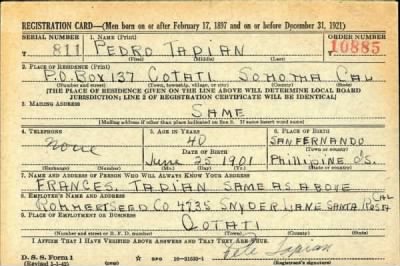 REGISTRATION CARD—(Men born on or after February 17, 1897 and on or before December 31, 1921)
SERIAL NUMBER 1. NAME (Print) ORDER NUMBER
811 PEDRO TAPIAN 10885
(First) (Middle) (Last)
2. PLACE OF RESIDENCE (Print)
P.O. BOX 137 COTATI SONOMA CAL
(Number and street) (Town, township, village, or city) (County) (State)
[THE PLACE OF RESIDENCE GIVEN ON THE LINE ABOVE WILL DETERMINE LOCAL BOARD
JURISDICTION; LINE 2 OF REGISTRATION CERTIFICATE WILL BE IDENTICAL]
3. MAILING ADDRESS
SAME
[Mailing address if other than place indicated on line 2. If same insert word same]
4. TELEPHONE 5. AGE IN YEARS 6. PLACE OF BIRTH
none 40 SAN FERNANDO
DATE OF BIRTH (Town or county)
June 25 1901 Phillipine IS.
(Exchange) (Number) (Mo.) (Day) (Yr.) (State or country)
7. NAME AND ADDRESS OF PERSON WHO WILL ALWAYS KNOW YOUR ADDRESS
FRANCES. TAPIAN SAME AS ABOVE
8. EMPLOYER'S NAME AND ADDRESS
SEED CO. 4735 SNYDER LANE SANTA ROSA CAL
9. PLACE OF EMPLOYMENT OR BUSINESS
COTATI
(Number and street or R. F. D. number) (Town) (County) (State)
I AFFIRM THAT I HAVE VERIFIED ABOVE ANSWERS AND THAT THEY ARE TRUE.
D. S. S. Form 1
(Revised 1-1-42) (over)